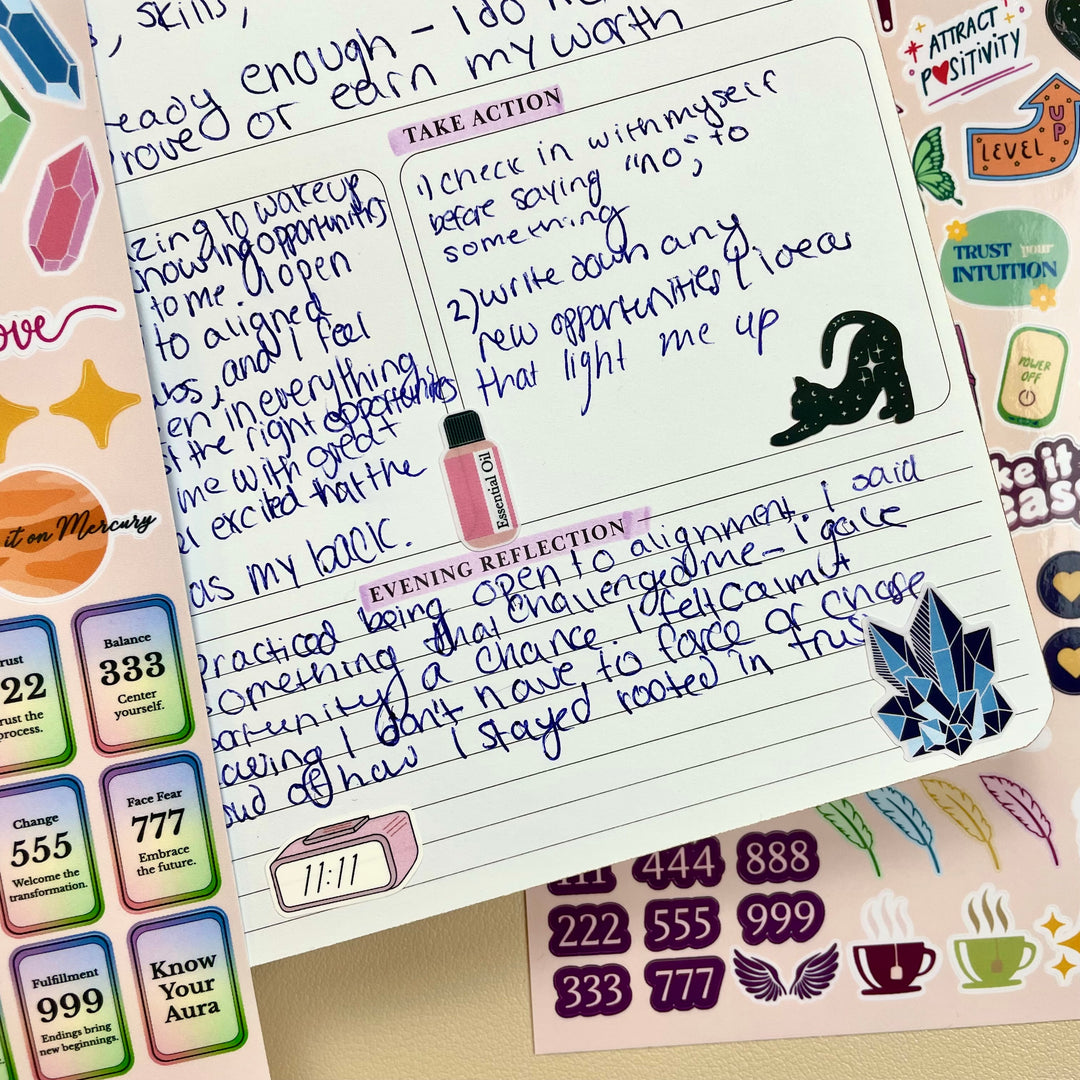 skills,
enough - I do
eady
prove or earn my worth
TAKE ACTION
1) check in with myself
before saying "no", to
something
2) write down any
new opportunities & ideas
that light me up
zing to wakeup
nowing opportunities
to me. I open
to aligned
bs, and I feel
en in everything
the right opportunities
me with great
excited that the
as my back.
Essential Oil
EVENING REFLECTION
practiced being open to alignment. I said
something that challenged me - I gave
portunity a chance. I felt calm
I don't have to force or chase
oud of how I stayed rooted in trus
11:11
ove
it on Mercury
rust
22
rust the
process.
Balance
333
Center
yourself.
Change
555
Welcome the
transformation.
Face Fear
777
Embrace
the future.
Fulfillment
999
Endings bring
new beginnings.
Know
Your
Aura
ATTRACT
POSITIVITY
LEVEL UP
TRUST your
INTUITION
POWER
OFF
ke it
eas
111
444
888
222
555
999
333
777